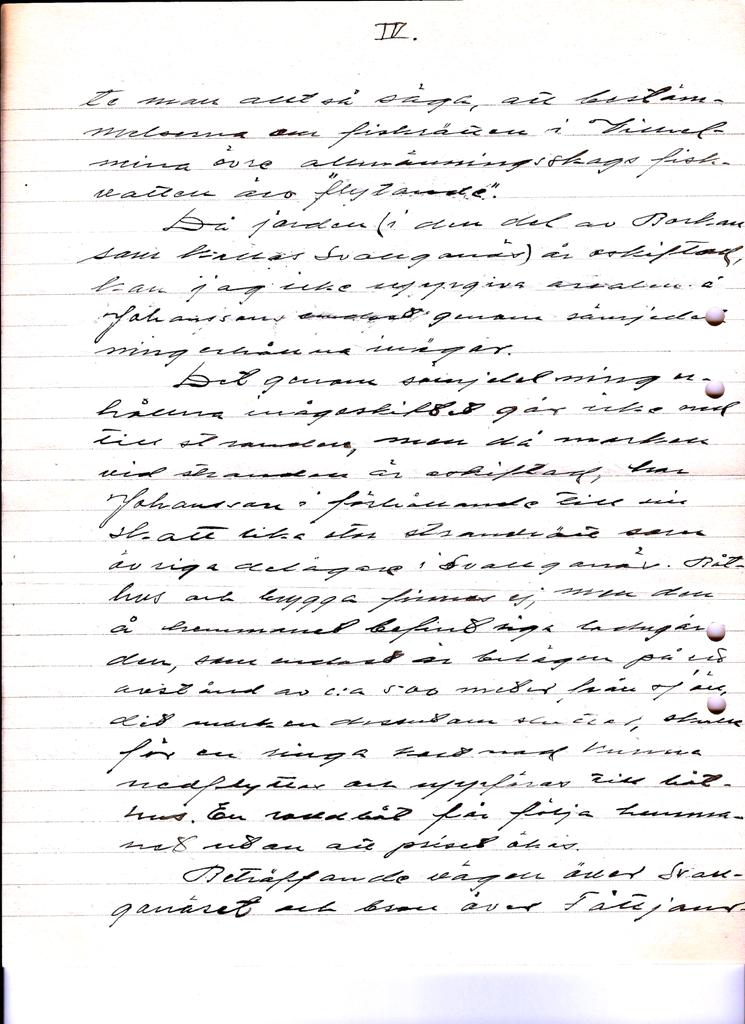 IV.
te man alltså säga, att bestäm-
melserna om fiskrätten i Vilhel-
mina övre allmänningsskogs fisk-
vatten äro "flytande".
Då jorden (i den del av Borkan
som kallas Svanganäs) är oskiftad,
kan jag icke uppgiva arealen å
Johanssons endast genom sämjedel-
ning erhållna inägor.
Det genom sämjedelning er-
hållna inägoskiftet går icke ned
till stranden, men då marken
vid stranden är oskiftad, har
Johansson i förhållande till sin
skatt lika stor strandrätt som
övriga delägare i Svanganäs. Båt-
hus och brygga finnes ej, men den
å hemmanet befintliga ladugår
den, som endast är belägen på ett
avstånd av c:a 500 meter från sjön,
dit marken dessutom sluttar, skulle
för en ringa kostnad kunna
nedflyttas och uppföras till båt-
hus. En roddbåt får följa hemma-
net utan att priset ökas.
Beträffande vägen över Svan-
ganäset och bron över Tåltjaur-